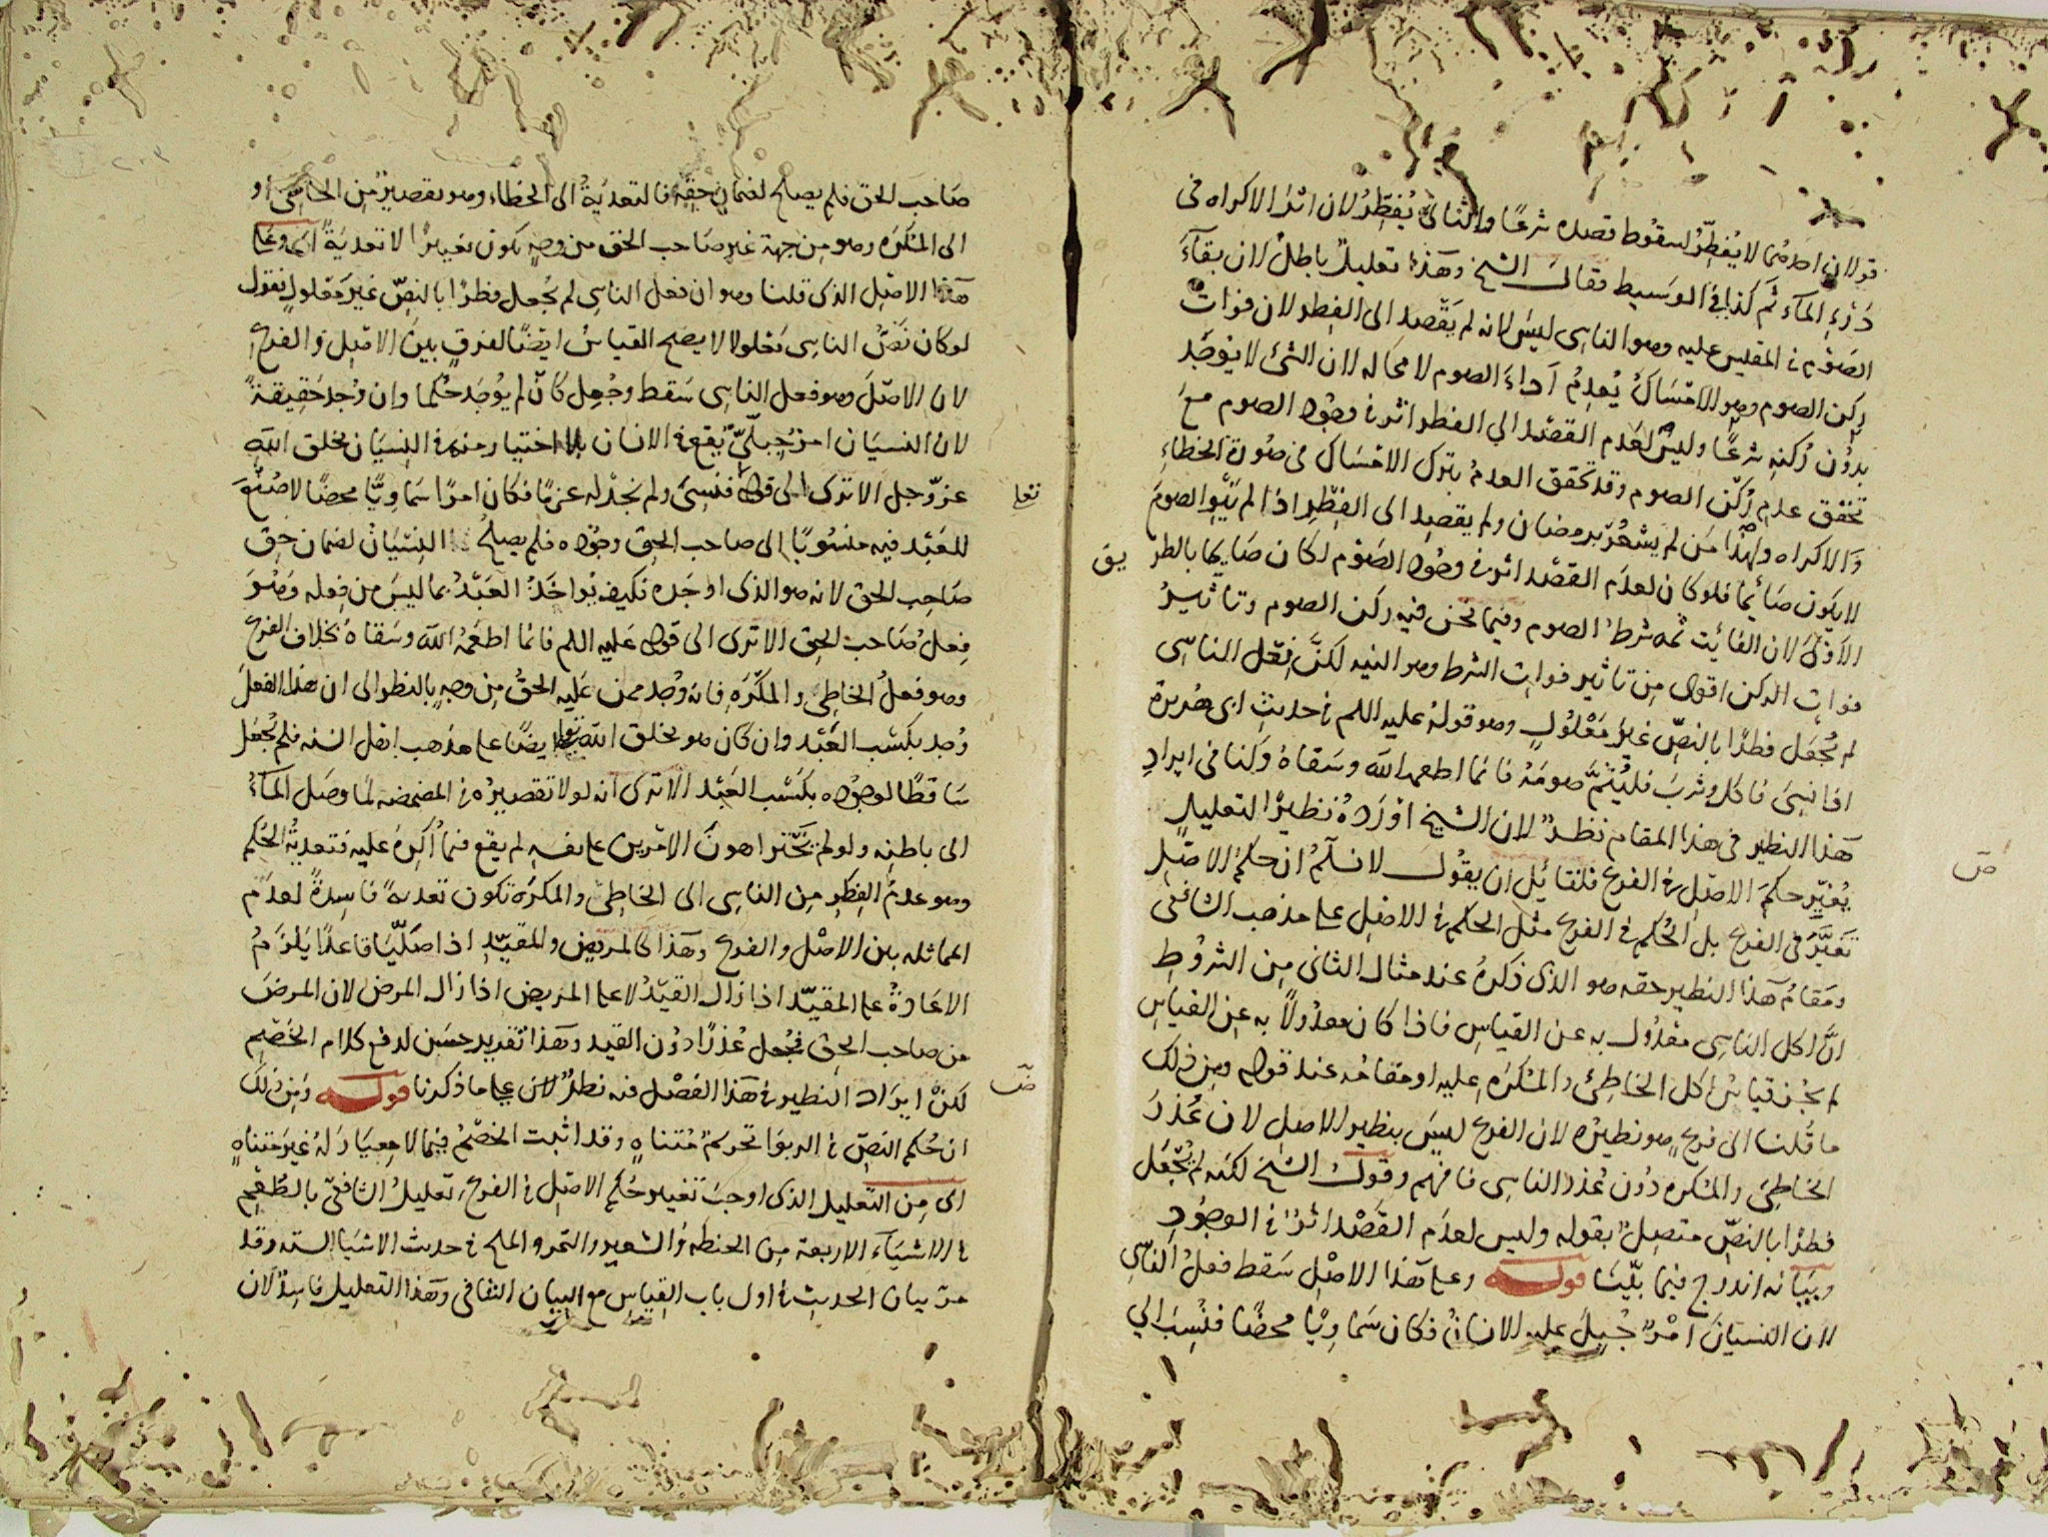 قولان احدهما لا يُفطِرُ لسقوط قصده شرعًا والثاني يُفطِرُ لان اثر الاكراه في
دَرْءِ المآء ثم كذا في الوسيط فقال الشيخ وهذا تعليل باطل لان بقآء
الصَوْم في المقيس عليه وهو الناسى ليس لانه لم يَقْصِد الى الفِطر لان فوات
ركن الصوم وهو الامْسَاك يُعدِمُ اداء الصوم لا محاله لان الشئ لا يوجَد
بدُون رُكنِه شرعًا وليس لعَدم القصْد الى الفطر اثر في وجود الصوم معَ
تحقق عدم رُكن الصوم وقد تحقق العدمُ بترك الامْسَاك في صُورة الخطاءِ
وَالاكراه ولهذا مَن لم يشعُر برمضان ولم يقصِد الى الفِطْرِ اذا لم يَنْوِ الصومَ
لا يكون صَائمًا فلو كان لعدَم القصْد اثر في وجُود الصَوْم لكان صَايما بالطر
يق
الاَوْلىَ لان الفائت ثمه شرطُ الصوم وفيما نحن فيه ركن الصوم وتاثيرُ
فوات الركن اقوى مِن تاثير فوات الشرط وهو النيه لكنَّ فِعْل الناسى
لم يُجعَل فطرًا بالنصّ غيرَ مَعْلُولٍ وهو قولهُ عليه السلم في حديثِ ابى هُريرة
اذا نسِىَ فاكل وشربَ فليُتمَّ صومَهُ فانما اطعمه اللّه وسَقاهُ وَكنا في ايرادِ
هَذا النظير في هذا المقام نظرٌ لان الشيخ اوْرَدَهُ نظيرًا لتعليل
ص
يُغيّر حكمَ الاصْل في الفرع فلقائل ان يقُول لا نسلّمُ ان حكمُ الاصْل
تَغيَّرَ في الفرع بل الحُكم في الفرع مثل الحكم في الاصْل على مذهب الشافعى
ومَقامُ هَذا النظير حقه هو الذى ذكرهُ عند مثال الثانى مِن الشرُوطِ
انَّ اكل الناسِى معدُول به عن القياسِ فاذا كان معدُولاً به عن القياسِ
لم يجُز قياسُ اكل الخاطئ والمُكرَه عليه او مقامُه عند قوله ومِن ذلك
ما قُلنا الى فرعٍ هو نظيرُه لان الفرع ليسَ بنظير الاصل لان عُذرَ
الخاطئ والمُكره دُون عُذر الناسى فافهم وقولُ الشيخ لكنه لم يُجْعَل
فطرًا بالنصّ متصِلٌ بقوله وليس لعدَم القَصْد اثرٌ في الوجُودِ
وبيَانه اندرج فيما بيّنا قوله وعلى هَذا الاصْل سَقط فعلُ الناسِى
لان النسيَانَ امْرٌ جُبِلَ عليهِ الانسَانُ فكان سَماوِيًا محضًا فنُسِبَ الي
صَاحب الحق فلم يصلح لضمان حقِّه فالتعديَةُ الى الخطاء وهو تقصيرٌ مِن الخاطئ او
الى المُكرَه وهو مِن جهة غير صَاحب الحق من وجهٍ يكون تغييرًا لا تعديَةً اى وعلى
هَذا الاصْل الذى قلنا وهو ان فعل الناسى لم يُجعل فطرًا بالنصّ غيرَ معْلولٍ نقول
لوكان نَصُّ الناسِى مَعْلولا لا يصح القياسُ ايضًا لفرقٍ بينَ الاصْل وَالفرعِ
لان الاصْلَ وهو فعل الناسِى سَقط وجُعِل كأن لم يُوجَد حُكما وان وُجِد حَقِيقةً
لان النسيَان امرٌ جِبِلّىٌّ يَقع في الانسان بلا اختيار منه في النِسيَان بخلق اللّهِ
تعلى
عزّ وجل الا ترى الى قوله فنسِىَ ولم نجدْ له عزمًا فكان امرًا سَماوِيًّا محضًا لا صُنْعَ
للعَبْد فيه منسُوبًا الى صاحب الحق وجُوده فلم يصلحُ النِسْيَانُ لضمان حق
صَاحِب الحق لانه هو الذى اوجَده فكيف يُواخَذُ العَبْدُ بما ليسَ من فِعله وهُوَ
فِعلُ صَاحب الحق الا ترى الى قوله عَليه السلم فانما اطعَمهُ اللّه وسَقاهُ بخلاف الفرع
وهو فعلُ الخاطئ والمكْرَهِ فانه وُجد ممن عَليه الحقُ مِن وجهٍ بالنظر الى ان هذا الفعل
وُجد بكسْب العَبْد وان كان هو بخلق اللّه تعلى ايضًا على مذهب اهل السنه فلم يُجعَل
سَاقطًا لوجُوده بكسْب العَبْد الا ترى انه لولا تقصيرُه في المضمضه لما وصَل المآءُ
الى باطنِه ولو لم يَخْتر اهونَ الامْرين على نفسِه لم يقع فيما اُكرِهَ عليه فتعديةُ الحُكم
وهو عدمُ الفِطرِ مِن الناسِى الى الخاطئ والمكرَه تكون تعديةً فاسِدةً لعدَم
المماثله بين الاصْل والفرع وهَذا كالمريض والمقيّد اذا صَلّيَا قاعدًا يَلزمُ
الاعَادةُ على المقيّد اذا زال القيْدُ لا على المريض اذا زال المرض لان المرضَ
من صاحب الحق فجُعل عُذرًا دُون القيد وهَذا تقدير حسَن لدفع كلام الخَصْم
ص
لكنْ ايرَاد النظير في هَذا الفَصْل فيه نظرٌ لان على ما ذكرنا قوله وَمِن ذلك
ان حُكم النصّ في الربوَا تحرِمةٌ مُتناهٍ وقد اثبت الخصْمُ فيما لا مِعيَارَ لهُ غيرَ متناهٍ
اى مِن التعليل الذى اوجبَ تغيير حُكم الاصْل في الفرع تعليلُ الشافعىّ بالطُعْم
في الاشيَآء الاربعة مِن الحنطه وَالشعير والتمر والملح في حديث الاشيَا السته وقد
مرّ بيان الحديث في اول باب القِياسِ مع البيان الشافى وهَذا التعليل فاسِدٌ لان